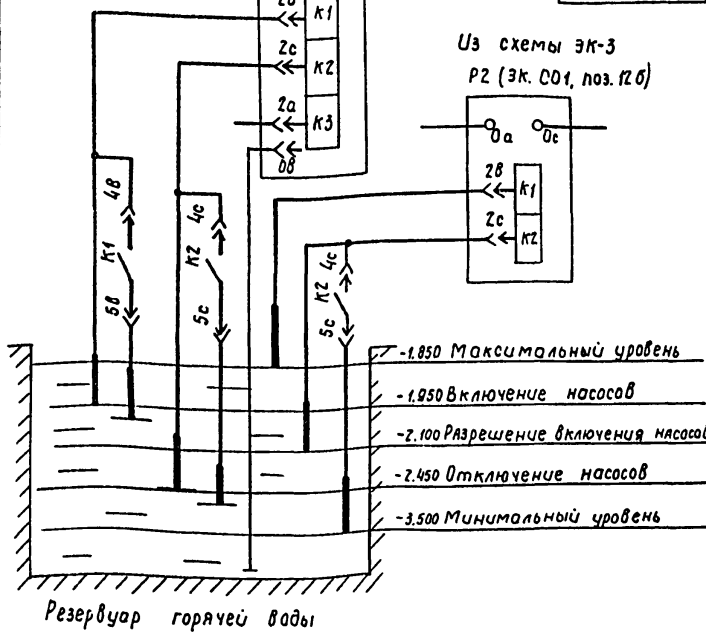 2в
К1
2с
К2
2а
К3
0в
Из схемы ЭК-3
Р2 (ЭК. СО1, поз. 12б)
0а 0с
2в
К1
2с
К2
4в
К1
5в
4с
К2
5с
4с
К2
5с
-1.850 Максимальный уровень
-1.950 Включение насосов
-2.100 Разрешение включения насосов
-2.450 Отключение насосов
-3.500 Минимальный уровень
Резервуар горячей воды